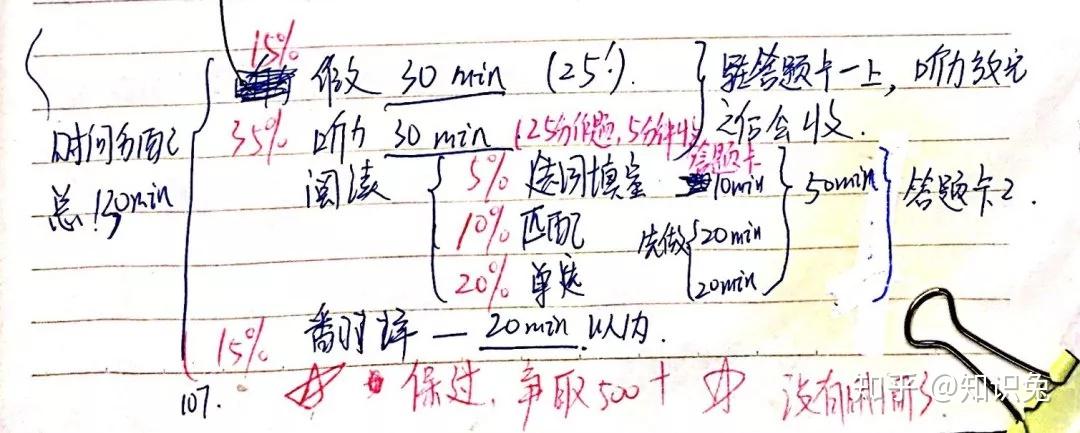 15% 作文 30 min (25')
35% 听力 30 min (25分作题,5分钟收答题卡
} 在答题卡一上,听力放完之后会收.
时间分配 总130min
阅读
5% 选词填空 10min
10% 匹配 20min
20% 单选 20min
先做
} 50min } 答题卡2.
15% 翻译 — 20min 以内.
107. ☆ 保过,争取500+ ☆ 没有
知乎 @知识兔